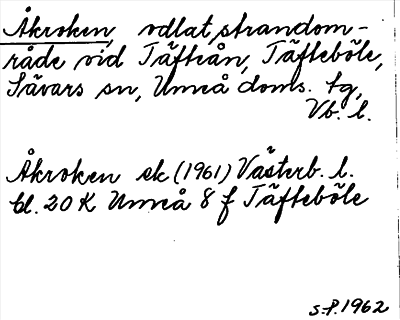 Åkroken, odlat strandom-
råde vid Täfteån, Täfteböle,
Sävars sn, Umeå doms. tg,
Vb. l.
Åkroken ek (1961) Västerb. l.
bl. 20 K Umeå 8 f Täfteböle
S.P. 1962